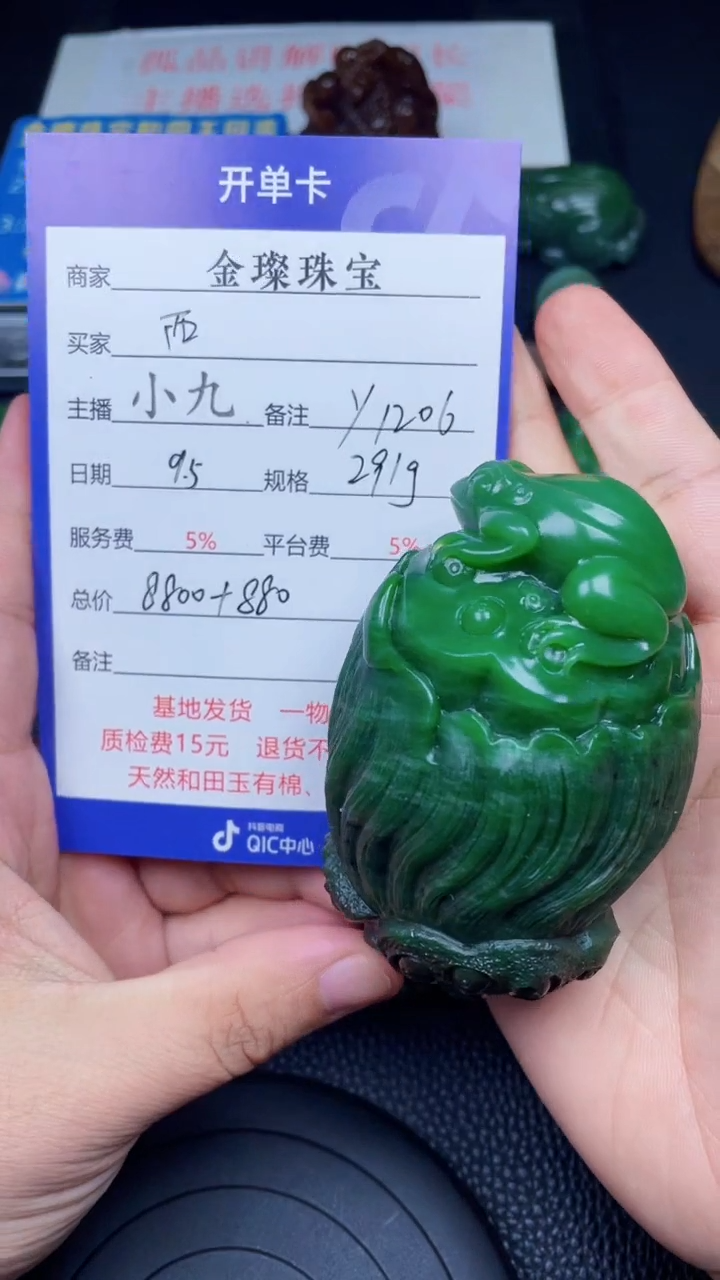 开单卡
商家 金璨珠宝
买家 西
主播 小九 备注 Y1206
日期 9.5 规格 291g
服务费 5% 平台费 5%
总价 8800+880
备注
基地发货 一物
质检费15元 退货不
天然和田玉有棉、
抖音电商
QIC中心